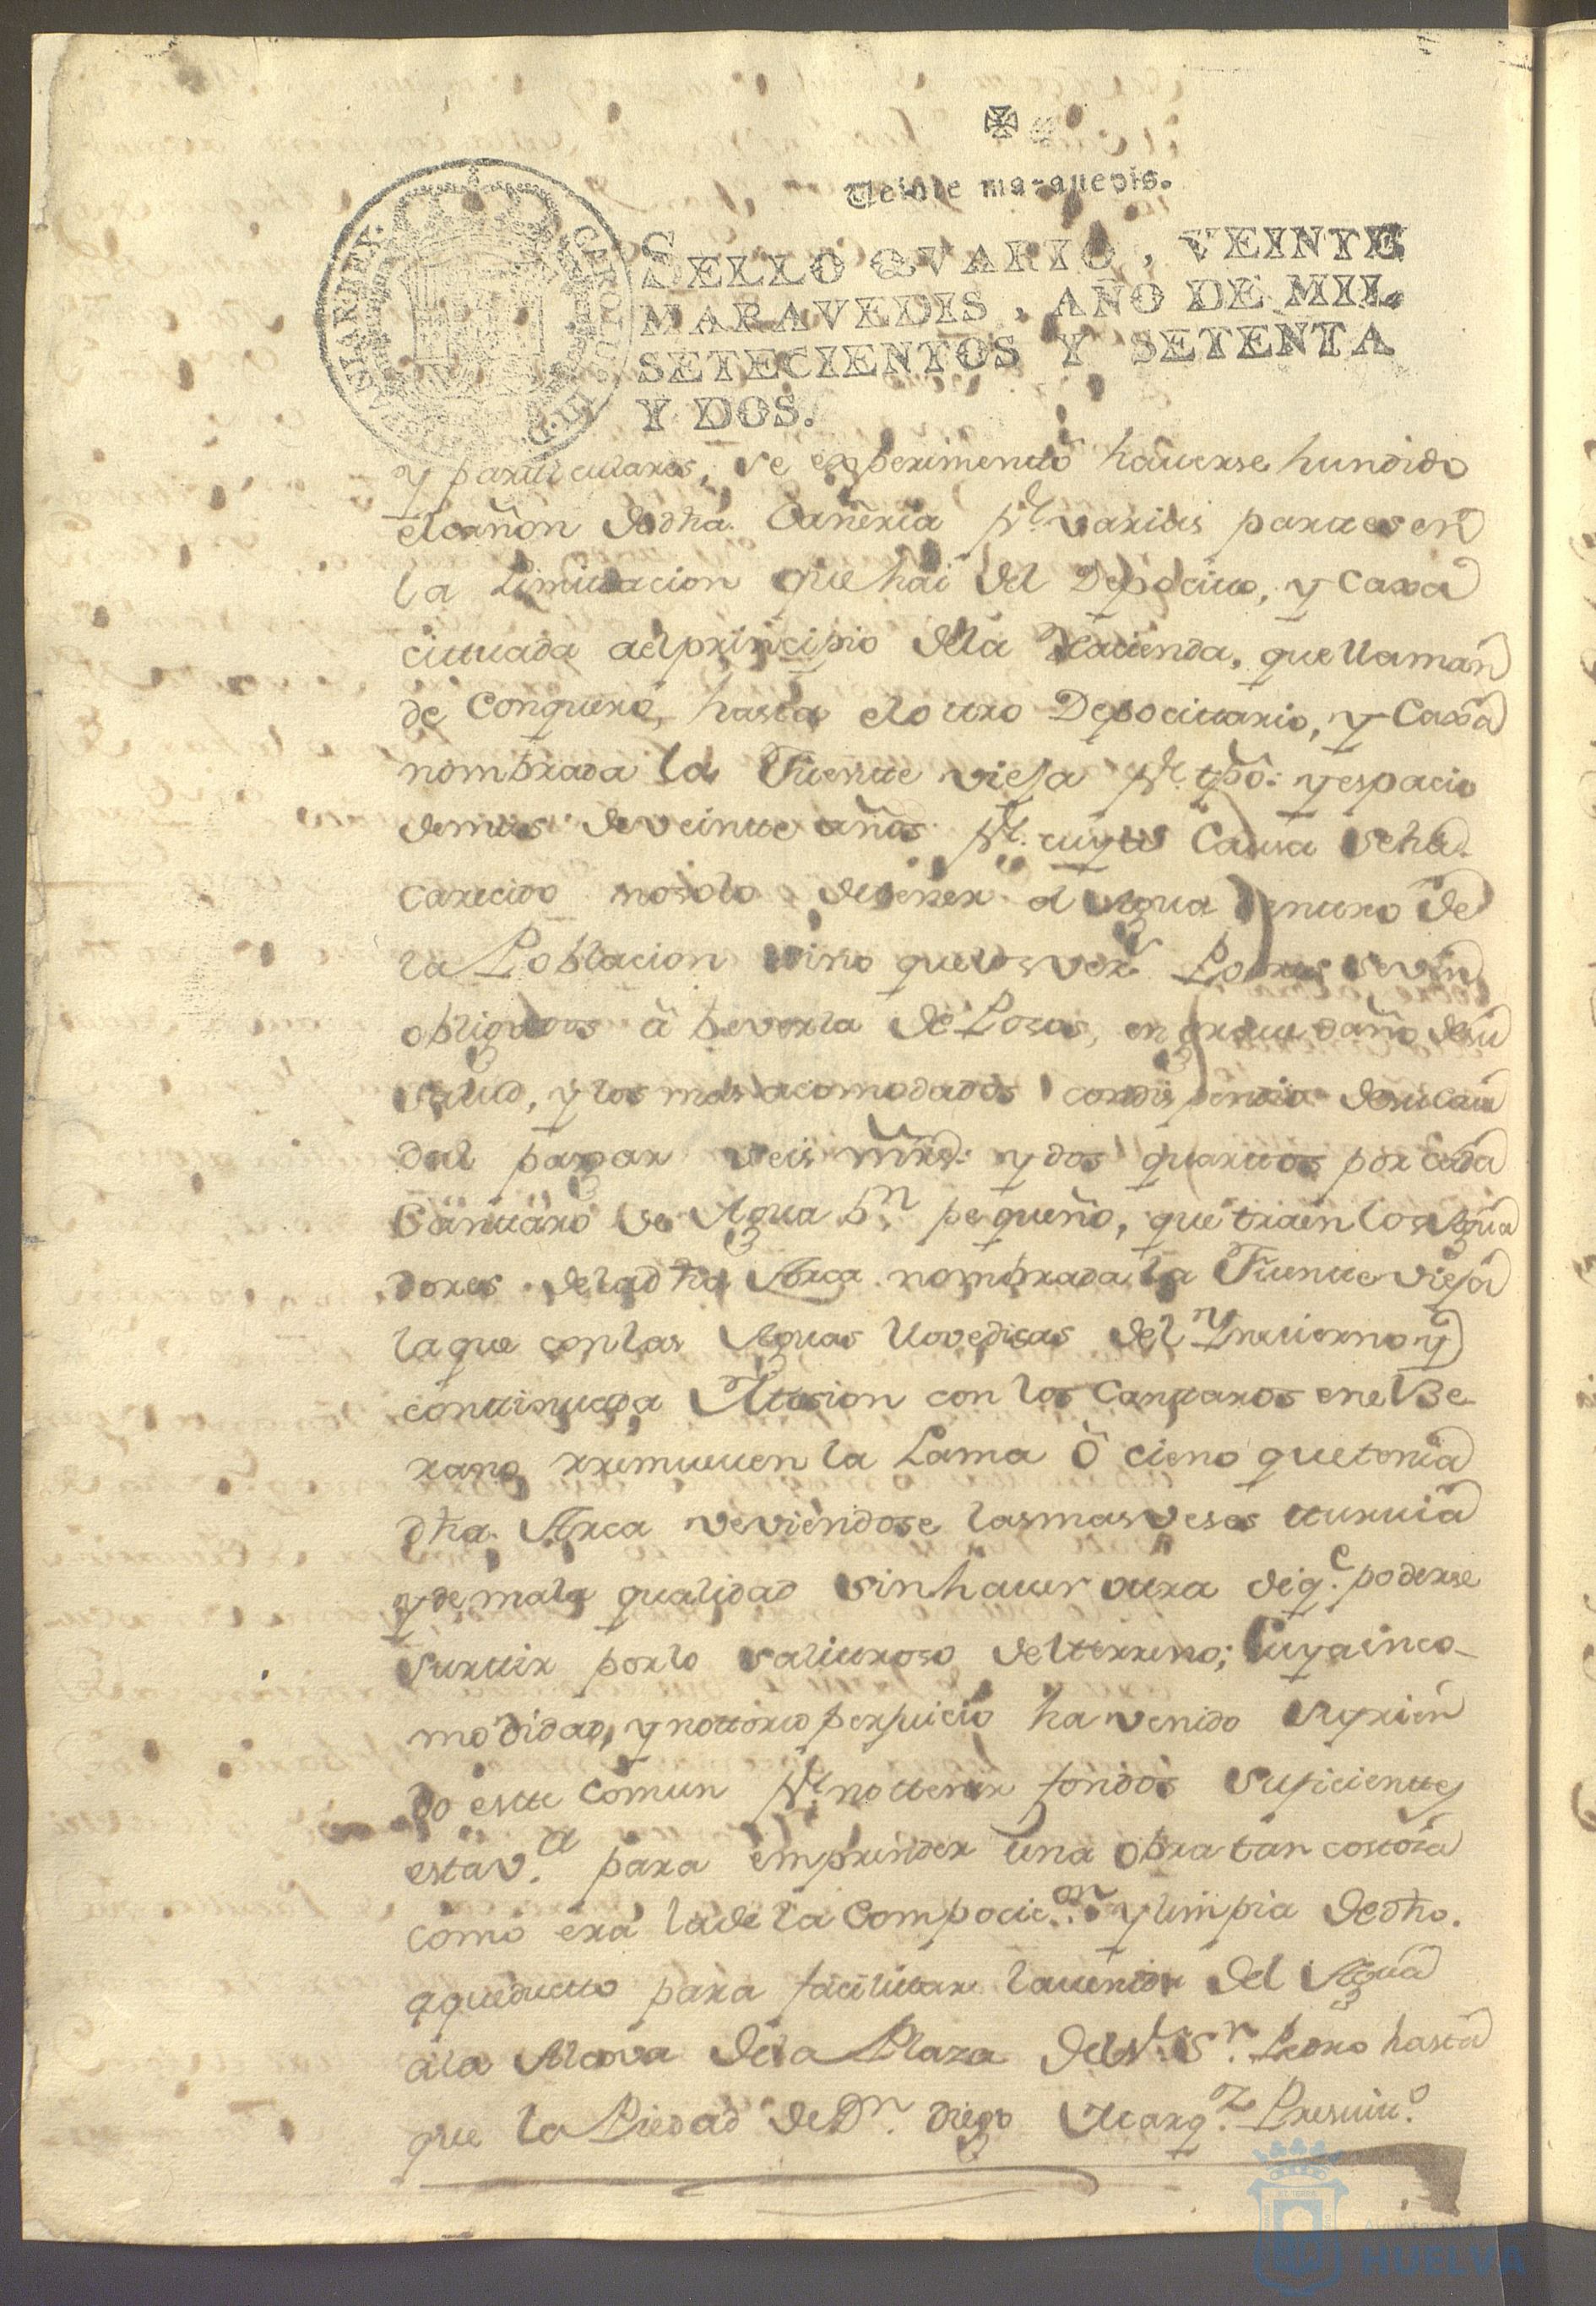 Veinte maravedis.
SELLO QVARTO, VEINTE
MARAVEDIS, AÑO DE MIL
SETECIENTOS Y SETENTA
Y DOS.
y particulares, se experimentó haverse hundido
el cañon de dha. Cañeria pr. varias partes en
la Limitacion que hai del Depocito, y Caxa
cituada al principio dela Hacienda, que llaman
de Conquero, hasta el otro Depocitario, y Caxa
nombrada la Fuente vieja pr. tpo: y espacio
demas de veinte años pr. cuya Causa se ha
carecido no solo de tener el Agua dentro de
la Poblacion sino que los vez.s Pobres se ven
obligados á beverla de Posos, en grave daño desu
salud, y los mas acomodados con dispendio desu cau
dal pagar seis mrs. y dos quartos por cada
Cantaro de Agua bn. pequeño, que traen los Agua
dores dela dha Arca nombrada la Fuente vieja
la que con las Aguas llovedisas del Ynvierno y
continuada Ilusion con los Cantaros en el Be
rano rremueven la Lama ô cieno que tenia
dha. Arca veviendose las mas veses turvia
y de mala qualidad sin haver otra de q.e poderse
survir por lo salitroso del terreno; Cuya inco-
modidad, y nottorio perjuicio ha venido sufrien
do este Comun pr. no tener fondos suficientes
esta v.a para emprender una obra tan costosa
como era la de la Compocic.on y limpia de dho.
aqueducto para facilitar la venida del Agua
a la Alcova dela Plaza del Sr. Sn. Pedro hasta
que la Piedad de Dn. Diego Marq.z Presvit.o
HUELVA